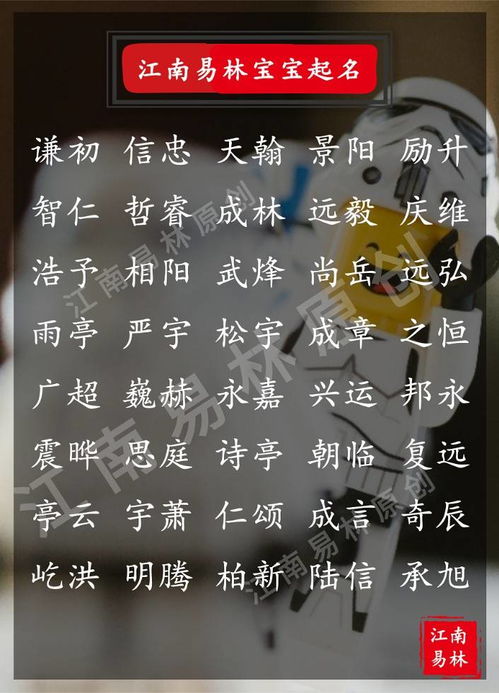 江南易林宝宝起名
谦初 信忠 天翰 景阳 励升
智仁 哲睿 成林 远毅 庆维
浩予 相阳 武烽 尚岳 远弘
雨亭 严宇 松宇 成章 之恒
广超 巍赫 永嘉 兴运 邦永
震晔 思庭 诗亭 朝临 复远
亭云 宇萧 仁颂 成言 奇辰
屹洪 明腾 柏新 陆信 承旭
江南易林原创
江南易林原创
江南易林原创
江南
易林